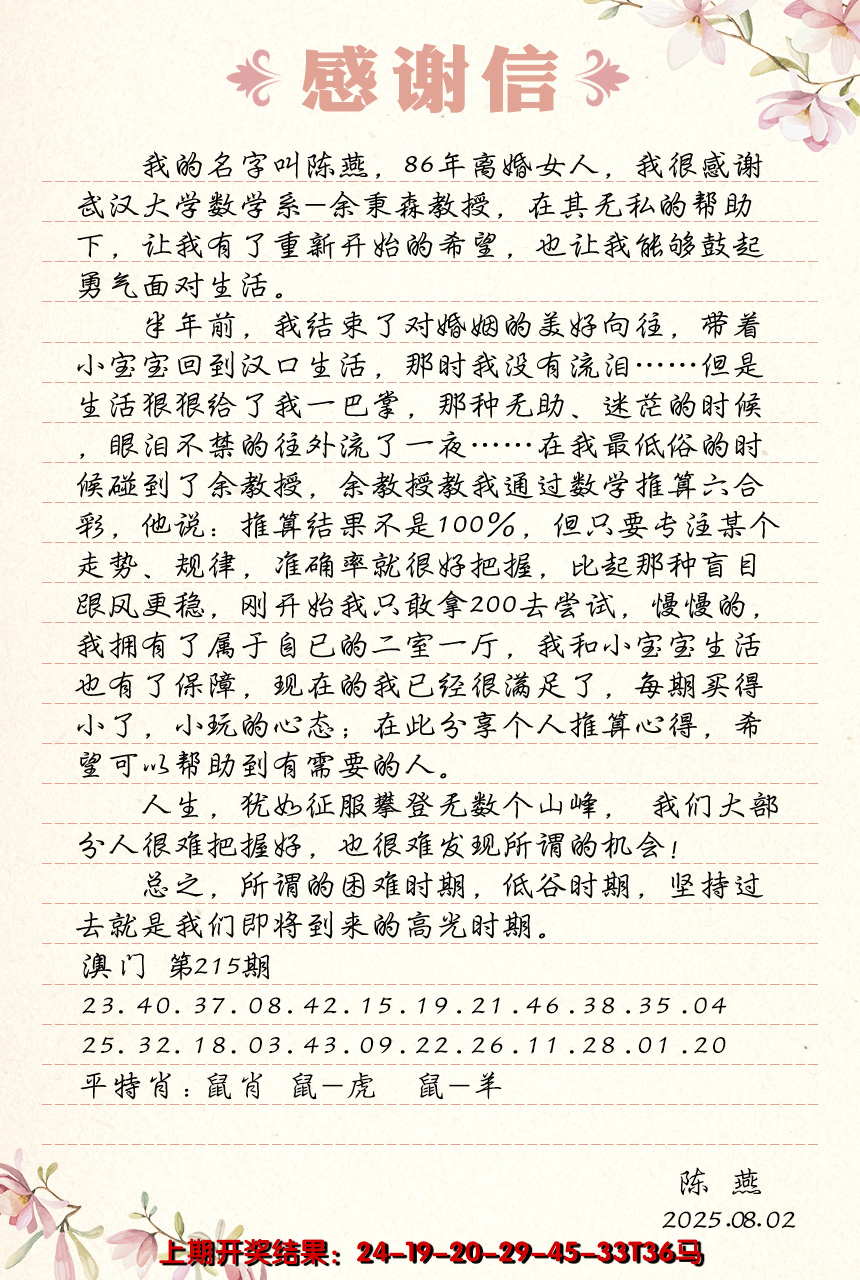 感谢信
我的名字叫陈燕，86年离婚女人，我很感谢
武汉大学数学系—余秉森教授，在其无私的帮助
下，让我有了重新开始的希望，也让我能够鼓起
勇气面对生活。
半年前，我结束了对婚姻的美好向往，带着
小宝宝回到汉口生活，那时我没有流泪……但是
生活狠狠给了我一巴掌，那种无助、迷茫的时候
，眼泪不禁的往外流了一夜……在我最低俗的时
候碰到了余教授，余教授教我通过数学推算六合
彩，他说：推算结果不是100%，但只要专注某个
走势、规律，准确率就很好把握，比起那种盲目
跟风更稳，刚开始我只敢拿200去尝试，慢慢的，
我拥有了属于自已的二室一厅，我和小宝宝生活
也有了保障，现在的我已经很满足了，每期买得
小了，小玩的心态；在此分享个人推算心得，希
望可以帮助到有需要的人。
人生，犹如征服攀登无数个山峰， 我们大部
分人很难把握好，也很难发现所谓的机会！
总之，所谓的困难时期，低谷时期，坚持过
去就是我们即将到来的高光时期。
澳门 第215期
23.40.37.08.42.15.19.21.46.38.35.04
25.32.18.03.43.09.22.26.11.28.01.20
平特肖：鼠肖 鼠—虎 鼠—羊
陈 燕
2025.08.02
上期开奖结果：24-19-20-29-45-33T36马